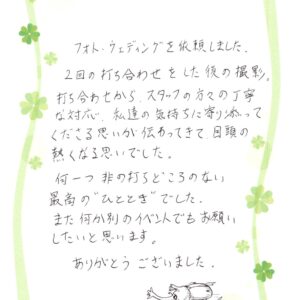 フォト・ウェディングを依頼しました。
2回の打ち合わせをした後の撮影。
打ち合わせから、スタッフの方々の丁寧
な対応、私達の気持ちに寄り添って
くださる思いが伝わってきて目頭の
熱くなる思いでした。
何一つ非の打ちどころのない
最高の"ひととき"でした。
また何か別のイベントでもお願い
したいと思います。
ありがとうございました。